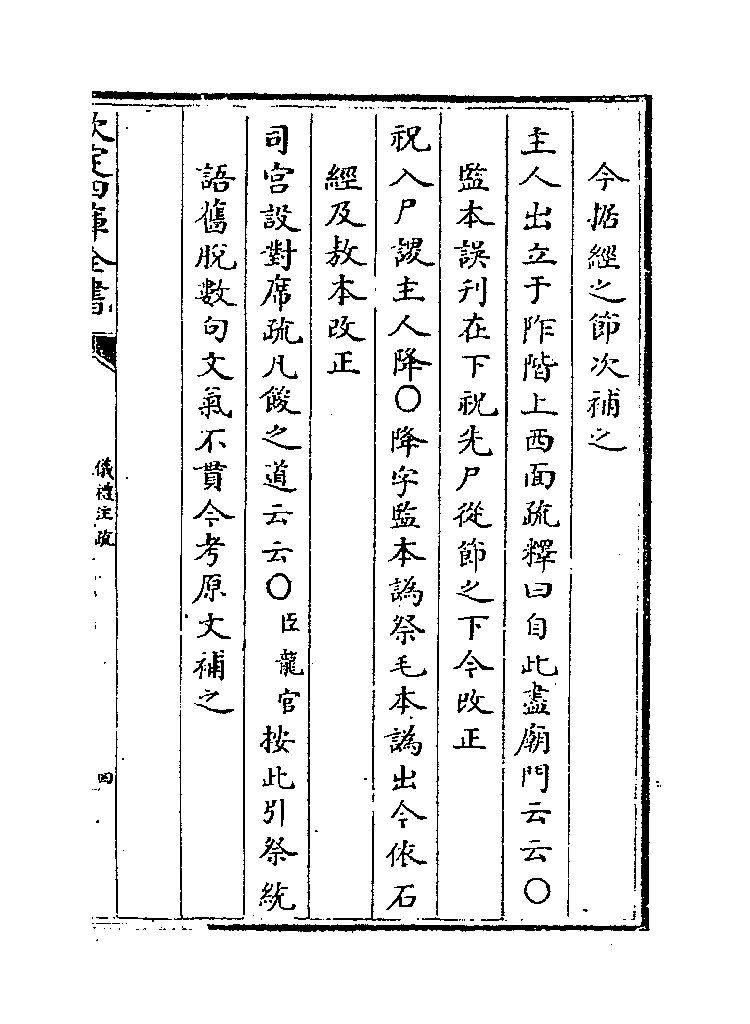 今据經之節次補之
主人出立于阼階上西面疏釋曰自此盡廟門云云〇
監本誤刋在下祝先尸從節之下今改正
祝入尸謖主人降〇降字監本譌祭毛本譌出今依石
經及敖本改正
司宫設對席疏凡餕之道云云〇臣龍官按此引祭統
語舊脫數句文氣不貫今考原文補之
欽定四庫全書
儀禮注疏
四